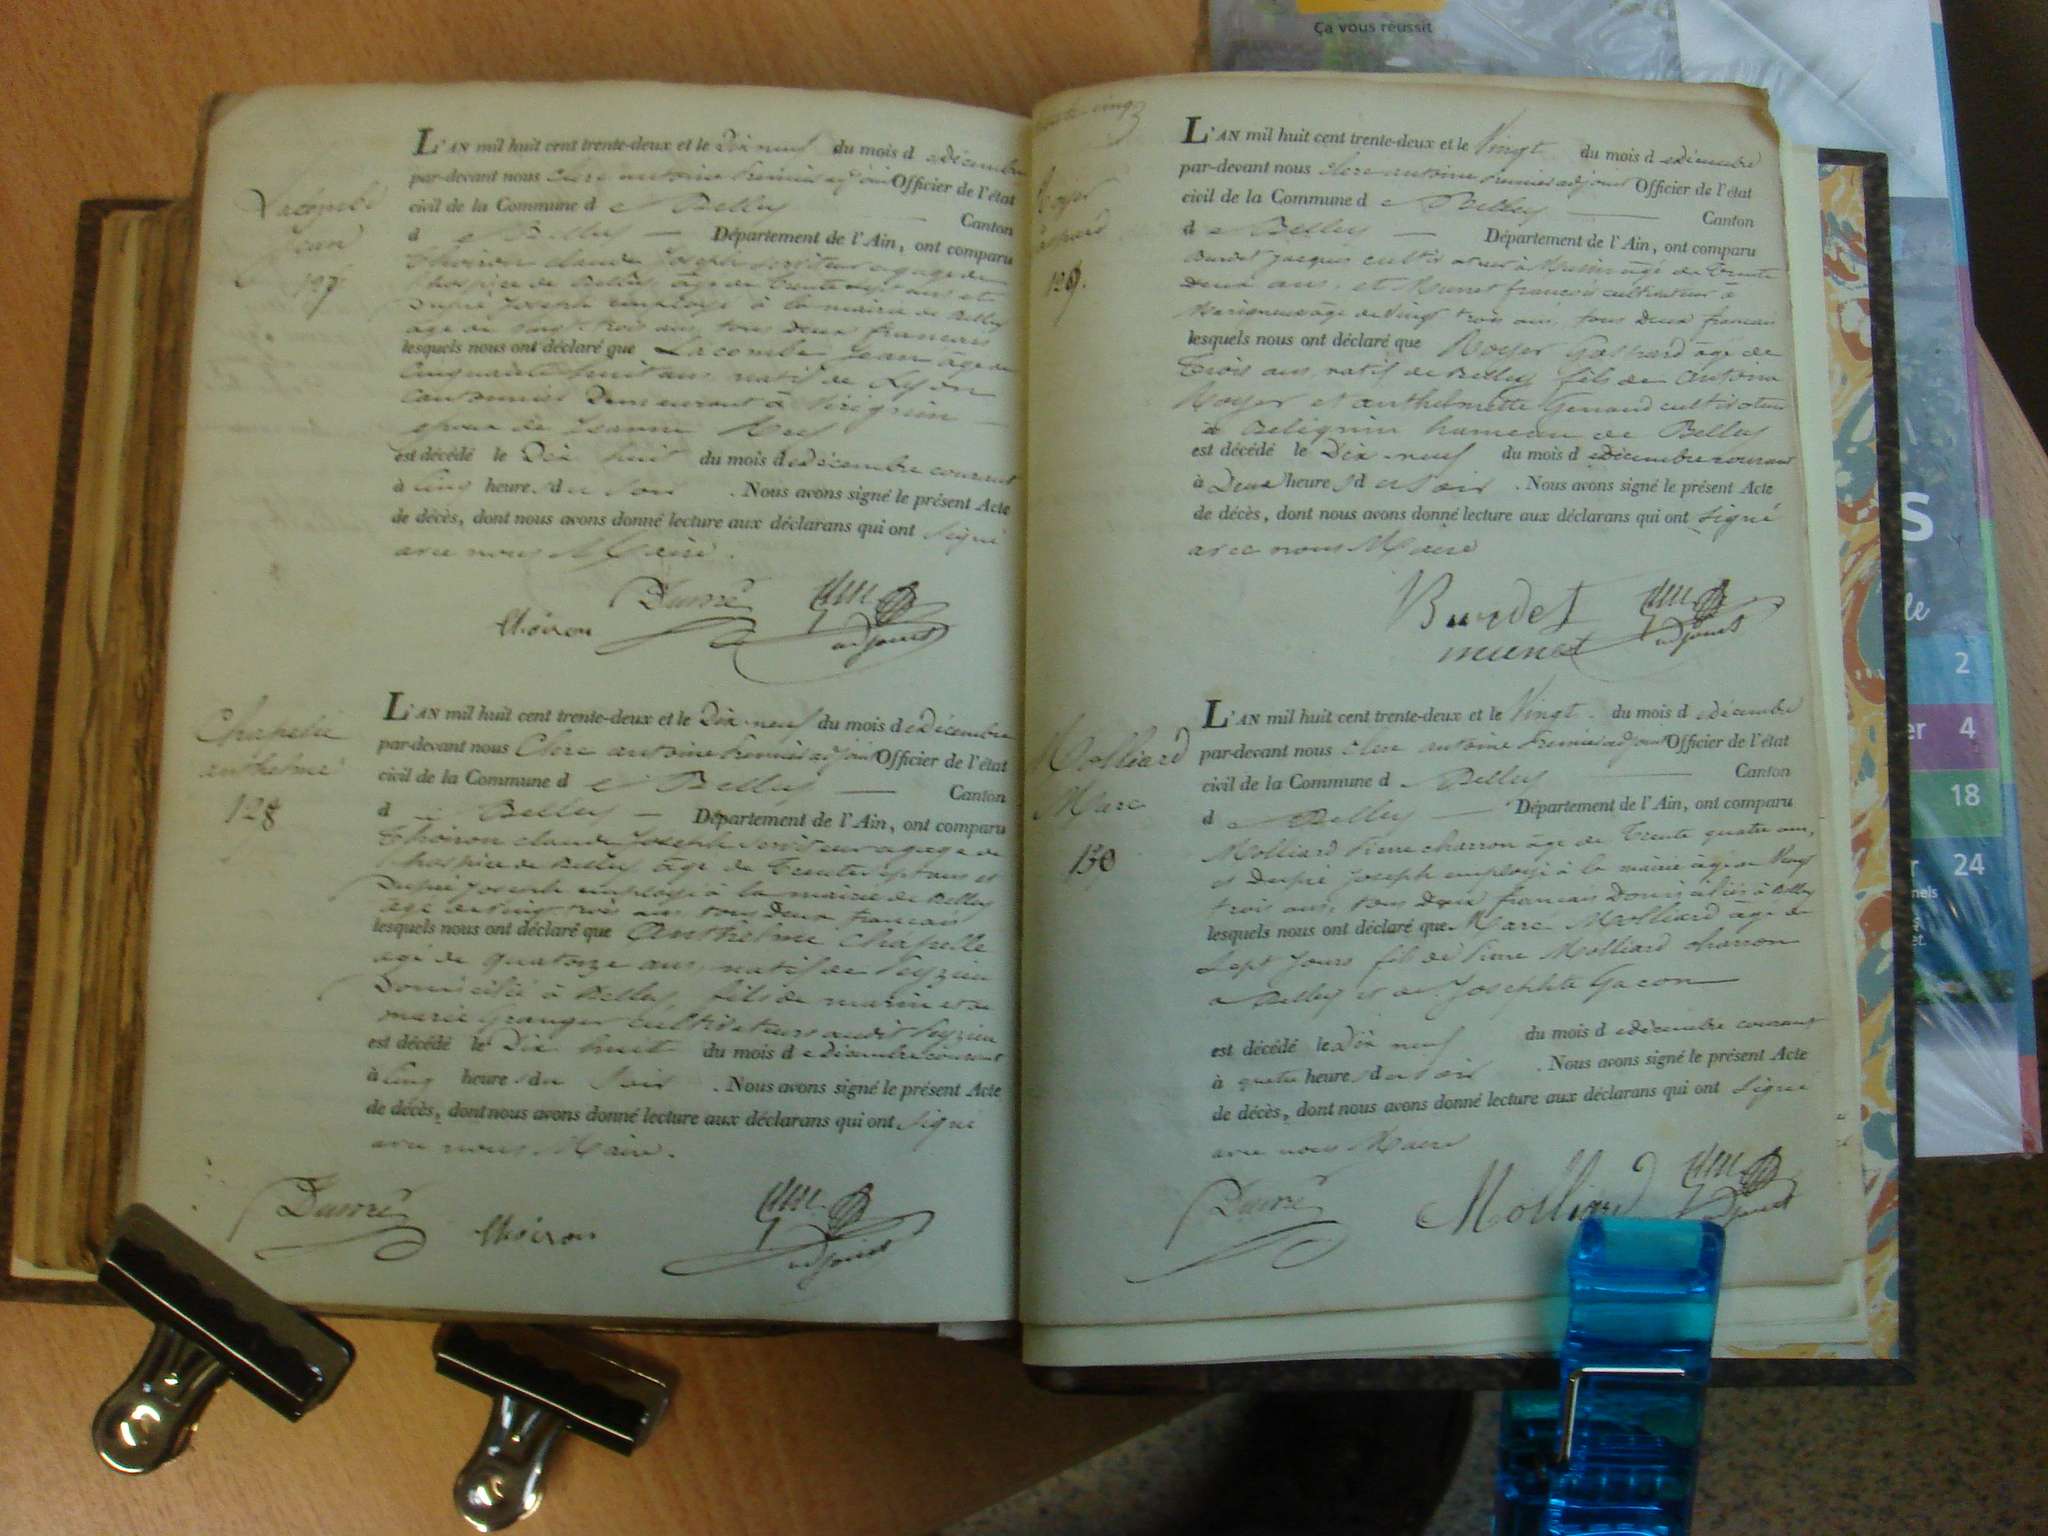 Lacombe
Jean
127
L'AN mil huit cent trente-deux et le Dix neuf du mois d e décembre
par-devant nous Clerc antoine Premier adjoint Officier de l'état
civil de la Commune d e Belley Canton
d e Belley Département de l'Ain, ont comparu
Thoiron claude Joseph serviteur a gage de
l'hospice de Belley âgé de trente sept ans et
Dupré Joseph employé à la mairie de Belley
âgé de vingt trois ans, tous deux francais
lesquels nous ont déclaré que Lacombe Jean âgé de
Cinquante huit ans natif de Lyon
Demeurant à Virignin
époux de Jeanne
est décédé le Dix huit du mois d e décembre courant
à Cinq heures du soir . Nous avons signé le présent Acte
de décès, dont nous avons donné lecture aux déclarans qui ont signé
avec nous Maire.
Thoiron Dupré adjoint
Chapelle
anthelme
128
L'AN mil huit cent trente-deux et le Dix-neuf du mois d e Décembre
par-devant nous Clerc antoine Premier adjoint Officier de l'état
civil de la Commune d e Belley Canton
d e Belley Département de l'Ain, ont comparu
Thoiron claude Joseph serviteur a gage de
l'hospice de Belley âgé de Trente sept ans et
Dupré Joseph employé à la mairie de Belley
âgé de vingt trois ans tous Deux francais
lesquels nous ont déclaré que Anthelme Chapelle
agé de quatorze ans, natif de Peyzieu
Domicilié à Belley, fils de marin et de
marie Granger cultivateurs audit Peyzieu
est décédé le Dix huit du mois d e Décembre courant
à Cinq heures du Soir . Nous avons signé le présent Acte
de décès, dont nous avons donné lecture aux déclarans qui ont Signé
avec nous Maire.
Dupré Thoiron adjoint
Royer
Gaspard
129.
L'AN mil huit cent trente-deux et le Vingt du mois d e décembre
par-devant nous Clerc antoine Premier adjoint Officier de l'état
civil de la Commune d e Belley Canton
d e Belley Département de l'Ain, ont comparu
Burdet Jacques cultivateur à âgé de Trente
Deux ans, et Munet françois cultivateur à
âgé de Vingt trois ans, tous Deux francais
lesquels nous ont déclaré que Royer Gaspard âgé de
Trois ans, natif de Belley fils de Antoine
Royer et anthelmette Genaud cultivateur
à hameau de Belley
est décédé le Dix-neuf du mois d e décembre courant
à Deux heures d u soir . Nous avons signé le présent Acte
de décès, dont nous avons donné lecture aux déclarans qui ont signé
avec nous Maire
Burdet
munet adjoint
Molliard
Marc
130
L'AN mil huit cent trente-deux et le Vingt du mois d e décembre
par-devant nous Clerc antoine Premier adjoint Officier de l'état
civil de la Commune d e Belley Canton
d e Belley Département de l'Ain, ont comparu
Molliard Pierre charron âgé de Trente quatre ans,
et Dupré Joseph employé à la mairie âgé de Vingt
trois ans, tous deux francais Domiciliés à Belley
lesquels nous ont déclaré que Marc Molliard âgé de
Sept Jours fils de Pierre Molliard charron
a Belley et de Josephte Gacon
est décédé le Dix neuf du mois d e décembre courant
à quatre heures d u soir . Nous avons signé le présent Acte
de décès, dont nous avons donné lecture aux déclarans qui ont Signé
avec nous Maire
Dupré Molliard adjoint
Ça vous réussit
s
le
2
er 4
18
r 24
nels
et.